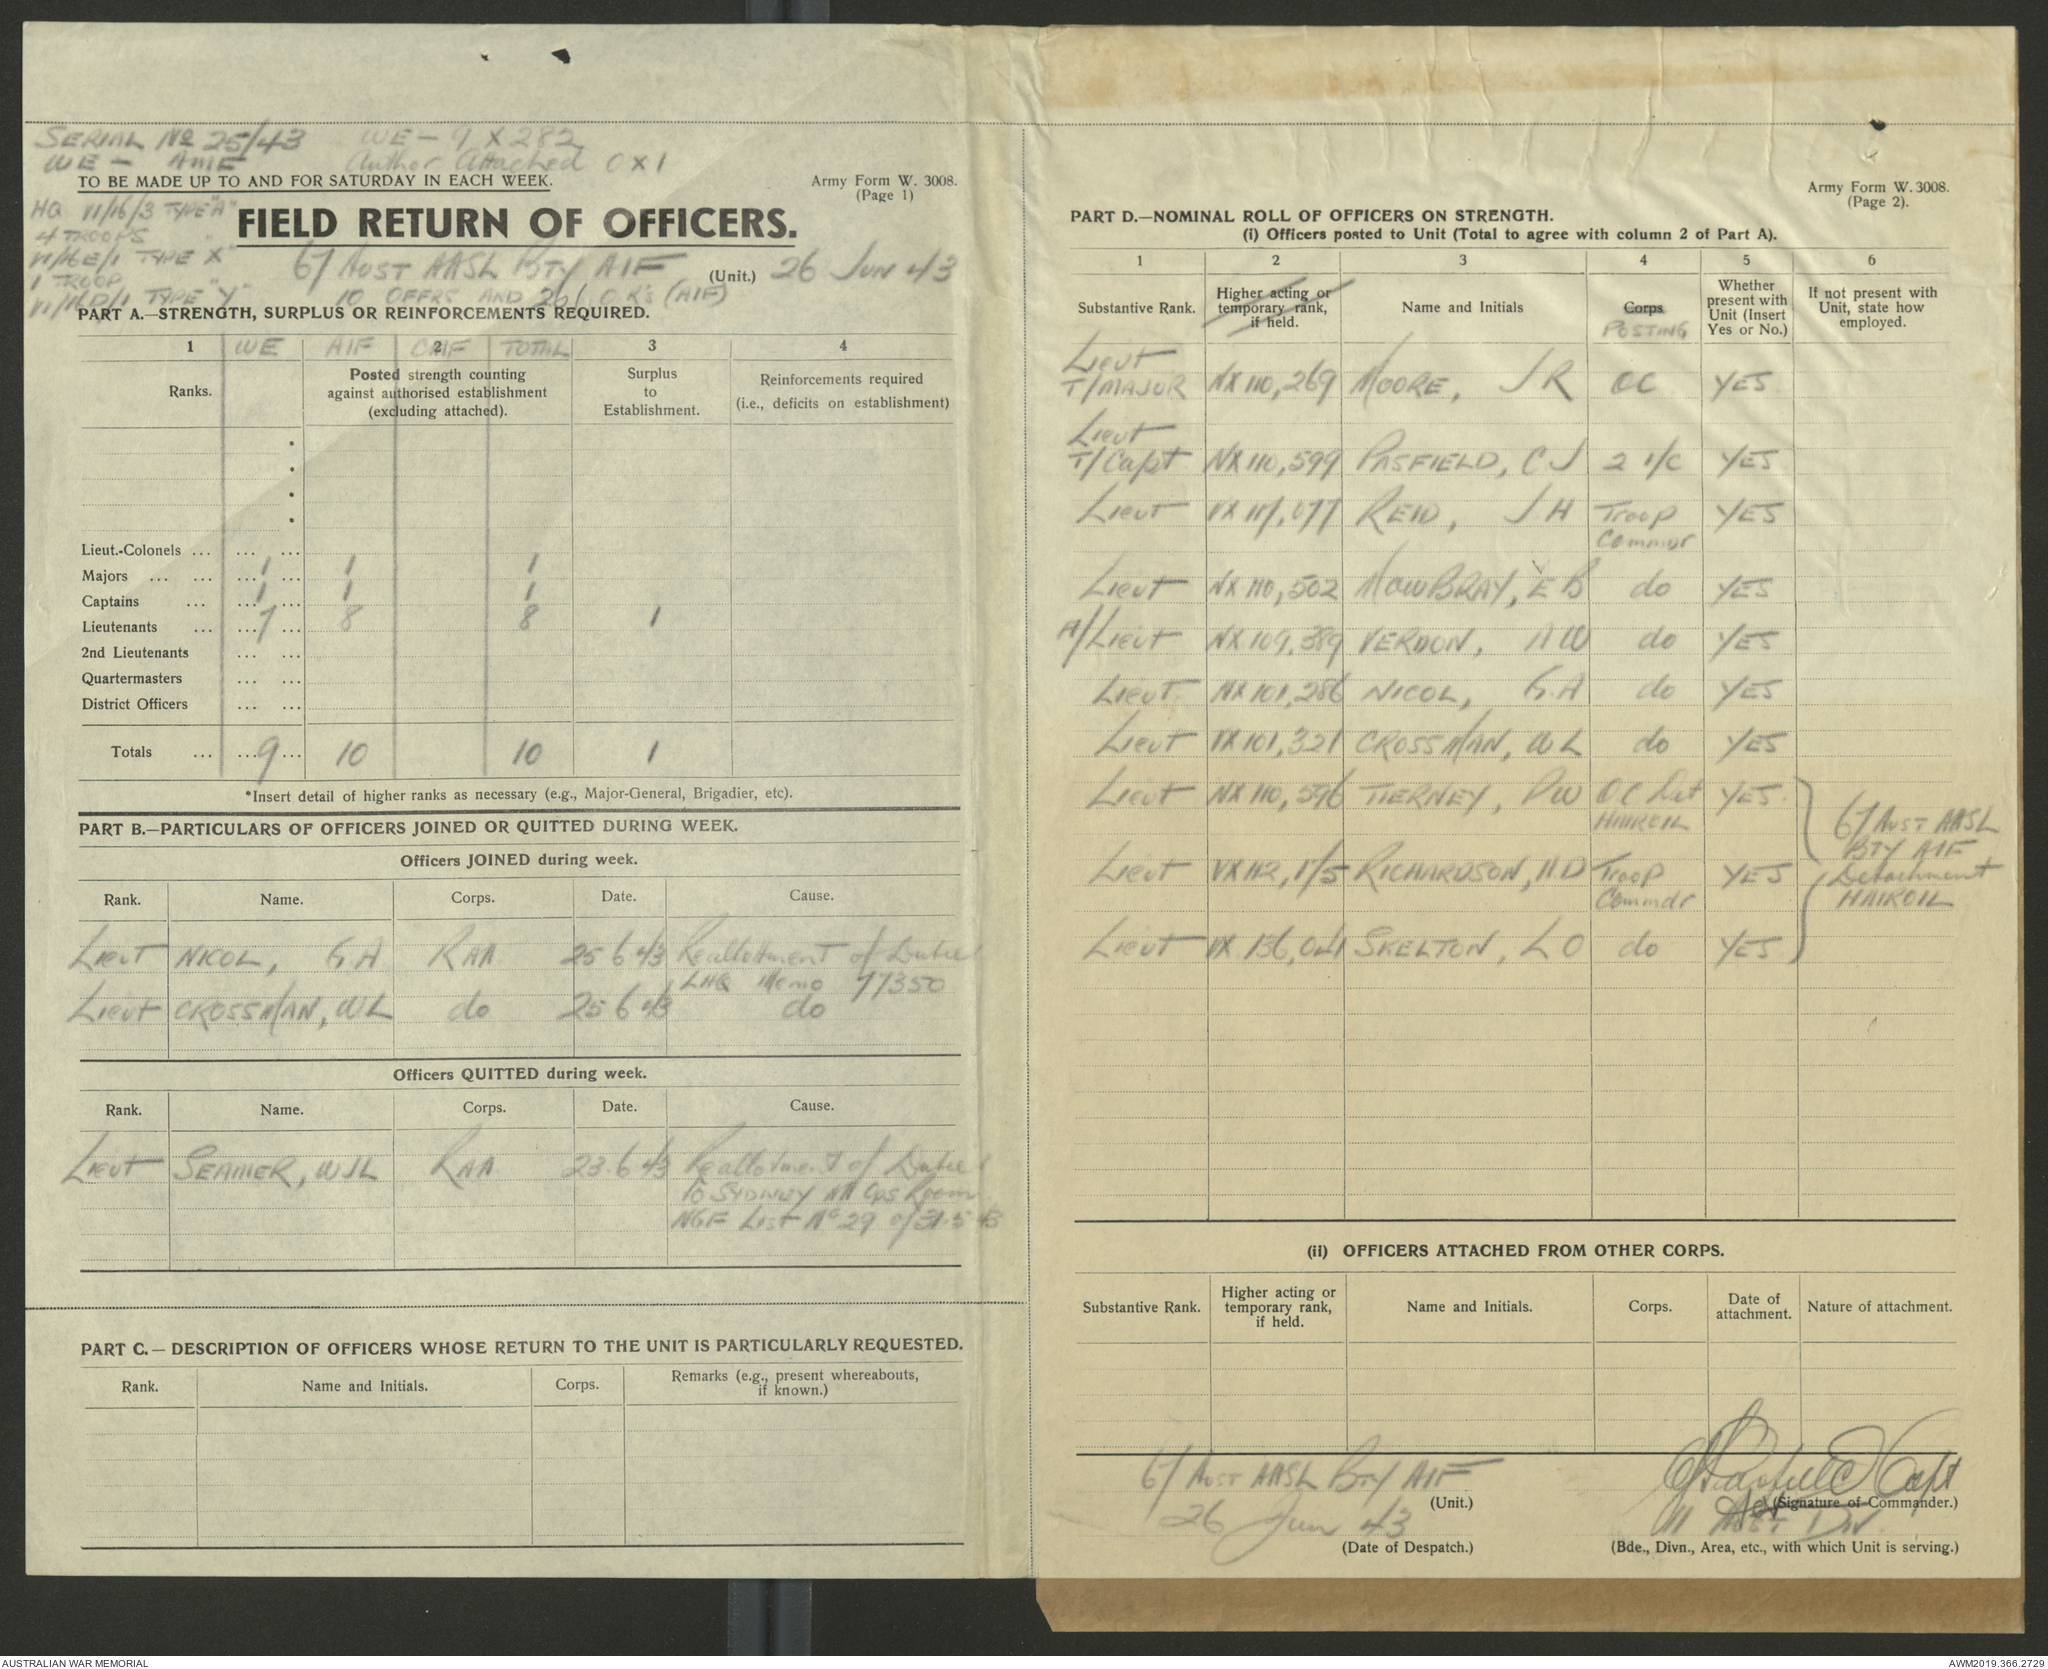 SERIAL No 25/43 WE - 9 X 282
WE - AME Author Attached 0 X 1
TO BE MADE UP TO AND FOR SATURDAY IN EACH WEEK.
Army Form W. 3008.
(Page 1)
HQ VI/16/3 TYPE "A"
4 TROOPS "
VI/16E/1 TYPE X"
1 TROOP
VI/16D/1 TYPE "Y"
FIELD RETURN OF OFFICERS.
67 AUST AASL BTY AIF (Unit.) 26 JUN 43
10 OFFRS AND 261 O.R's (AIF)
PART A.—STRENGTH, SURPLUS OR REINFORCEMENTS REQUIRED.
1 WE AIF 2 CMF TOTAL 3 4
Ranks. Posted strength counting against authorised establishment (excluding attached). Surplus to Establishment. Reinforcements required (i.e., deficits on establishment)
Lieut.-Colonels
Majors 1 1 1
Captains 1 1 1
Lieutenants 7 8 8 1
2nd Lieutenants
Quartermasters
District Officers
Totals 9 10 10 1
*Insert detail of higher ranks as necessary (e.g., Major-General, Brigadier, etc).
PART B.—PARTICULARS OF OFFICERS JOINED OR QUITTED DURING WEEK.
Officers JOINED during week.
Rank. Name. Corps. Date. Cause.
Lieut NICOL, GA RAA 25 6 43 Reallotment of Duties
LHQ Memo 77350
Lieut CROSSMAN, WL do 25 6 43 do
Officers QUITTED during week.
Rank. Name. Corps. Date. Cause.
Lieut SEAMER, WJL RAA 23.6 43 Reallotment of Duties
to SYDNEY AA Ops Room
NGF List No 29 of 31.5.43
PART C.—DESCRIPTION OF OFFICERS WHOSE RETURN TO THE UNIT IS PARTICULARLY REQUESTED.
Rank. Name and Initials. Corps. Remarks (e.g., present whereabouts, if known.)
Army Form W. 3008.
(Page 2).
PART D.—NOMINAL ROLL OF OFFICERS ON STRENGTH.
(i) Officers posted to Unit (Total to agree with column 2 of Part A).
1 2 3 4 5 6
Substantive Rank. Higher acting or temporary rank, if held. Name and Initials Corps POSTING Whether present with Unit (Insert Yes or No.) If not present with Unit, state how employed.
Lieut
T/MAJOR NX 110,269 MOORE, J R OC YES
Lieut
T/Capt NX 110,599 PASFIELD, C J 2 I/C YES
Lieut VX 117,077 REID, J H Troop Commdr YES
Lieut NX 110,502 MOWBRAY, E B do YES
A/Lieut NX 109,389 VERDON, A W do YES
Lieut NX 101,286 NICOL, G.A do YES
Lieut VX 101,321 CROSSMAN, WL do YES
Lieut NX 110,596 TIERNEY, PW OC Det HAIROIL YES
67 AUST AASL
BTY AIF
Detachment
HAIROIL
Lieut VX 112,175 RICHARDSON, H D Troop Commdr YES
Lieut VX 136,041 SKELTON, L O do YES
(ii) OFFICERS ATTACHED FROM OTHER CORPS.
Substantive Rank. Higher acting or temporary rank, if held. Name and Initials. Corps. Date of attachment. Nature of attachment.
67 AUST AASL BTY AIF
(Unit.)
CJ Pasfield Capt
(Signature of Commander.)
26 Jun 43
(Date of Despatch.)
11 AUST DIV
(Bde., Divn., Area, etc., with which Unit is serving.)
AUSTRALIAN WAR MEMORIAL
AWM2019.366.2729